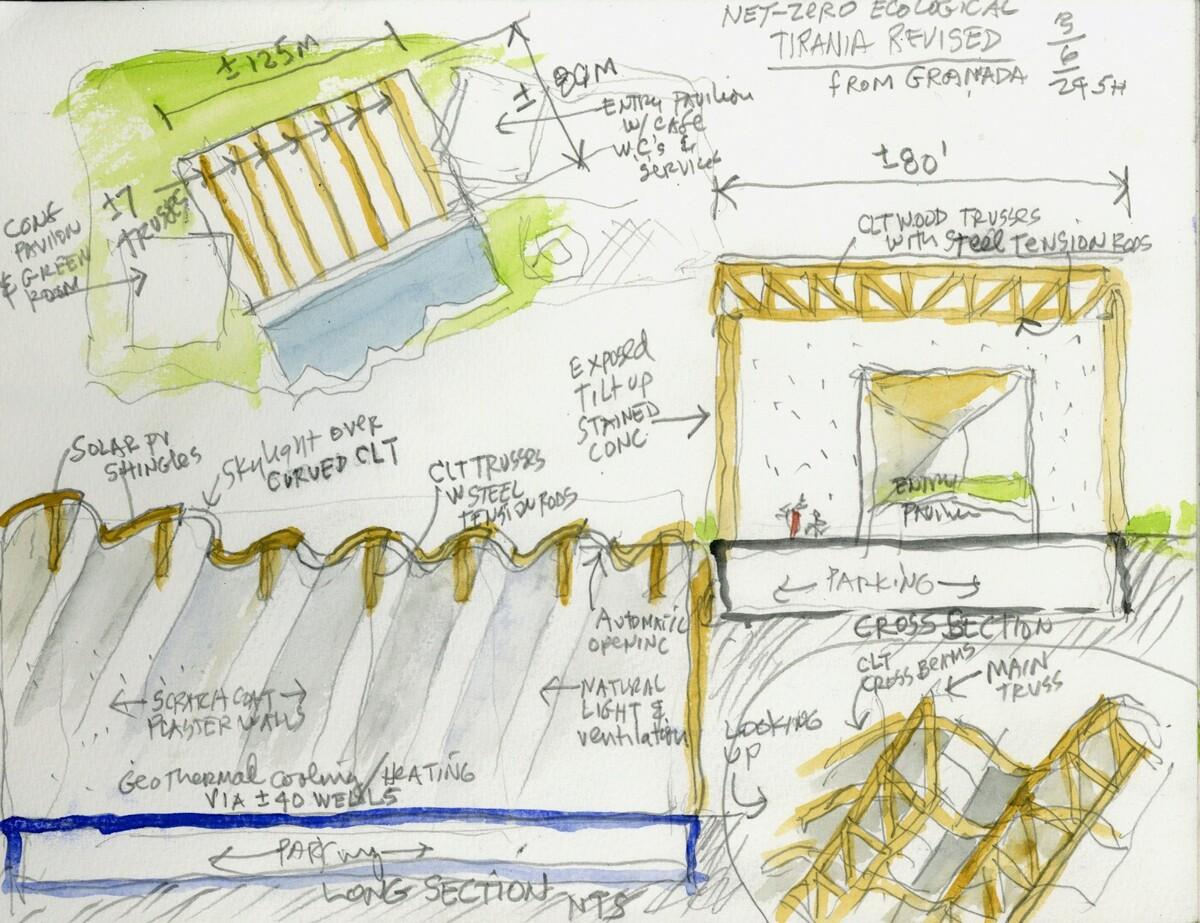 NET-ZERO ECOLOGICAL
TIRANIA REVISED
from GRANADA
3
6
24 SH
±125M
± 80M
ENTRY PAVILION
W/ CAFE
W.C'S &
SERVICES
±7
TRUSSES
CONF
PAVILION
& GREEN
ROOM
±80'
CLT WOOD TRUSSES
with Steel TENSION RODS
Exposed
TILT UP
STAINED
CONC
ENTRY
PAVILION
PARKING
CROSS SECTION
SOLAR PV
SHINGLES
SKYLIGHT OVER
CURVED CLT
CLT TRUSSES
W STEEL
TENSION RODS
AUTOMATIC
OPENING
SCRATCH COAT
PLASTER WALLS
NATURAL
LIGHT &
ventilation
Geothermal cooling/HEATING
VIA ±40 WELLS
PARKING
LONG SECTION
NTS
CLT
CROSS BEAMS
MAIN
TRUSS
LOOKING
UP